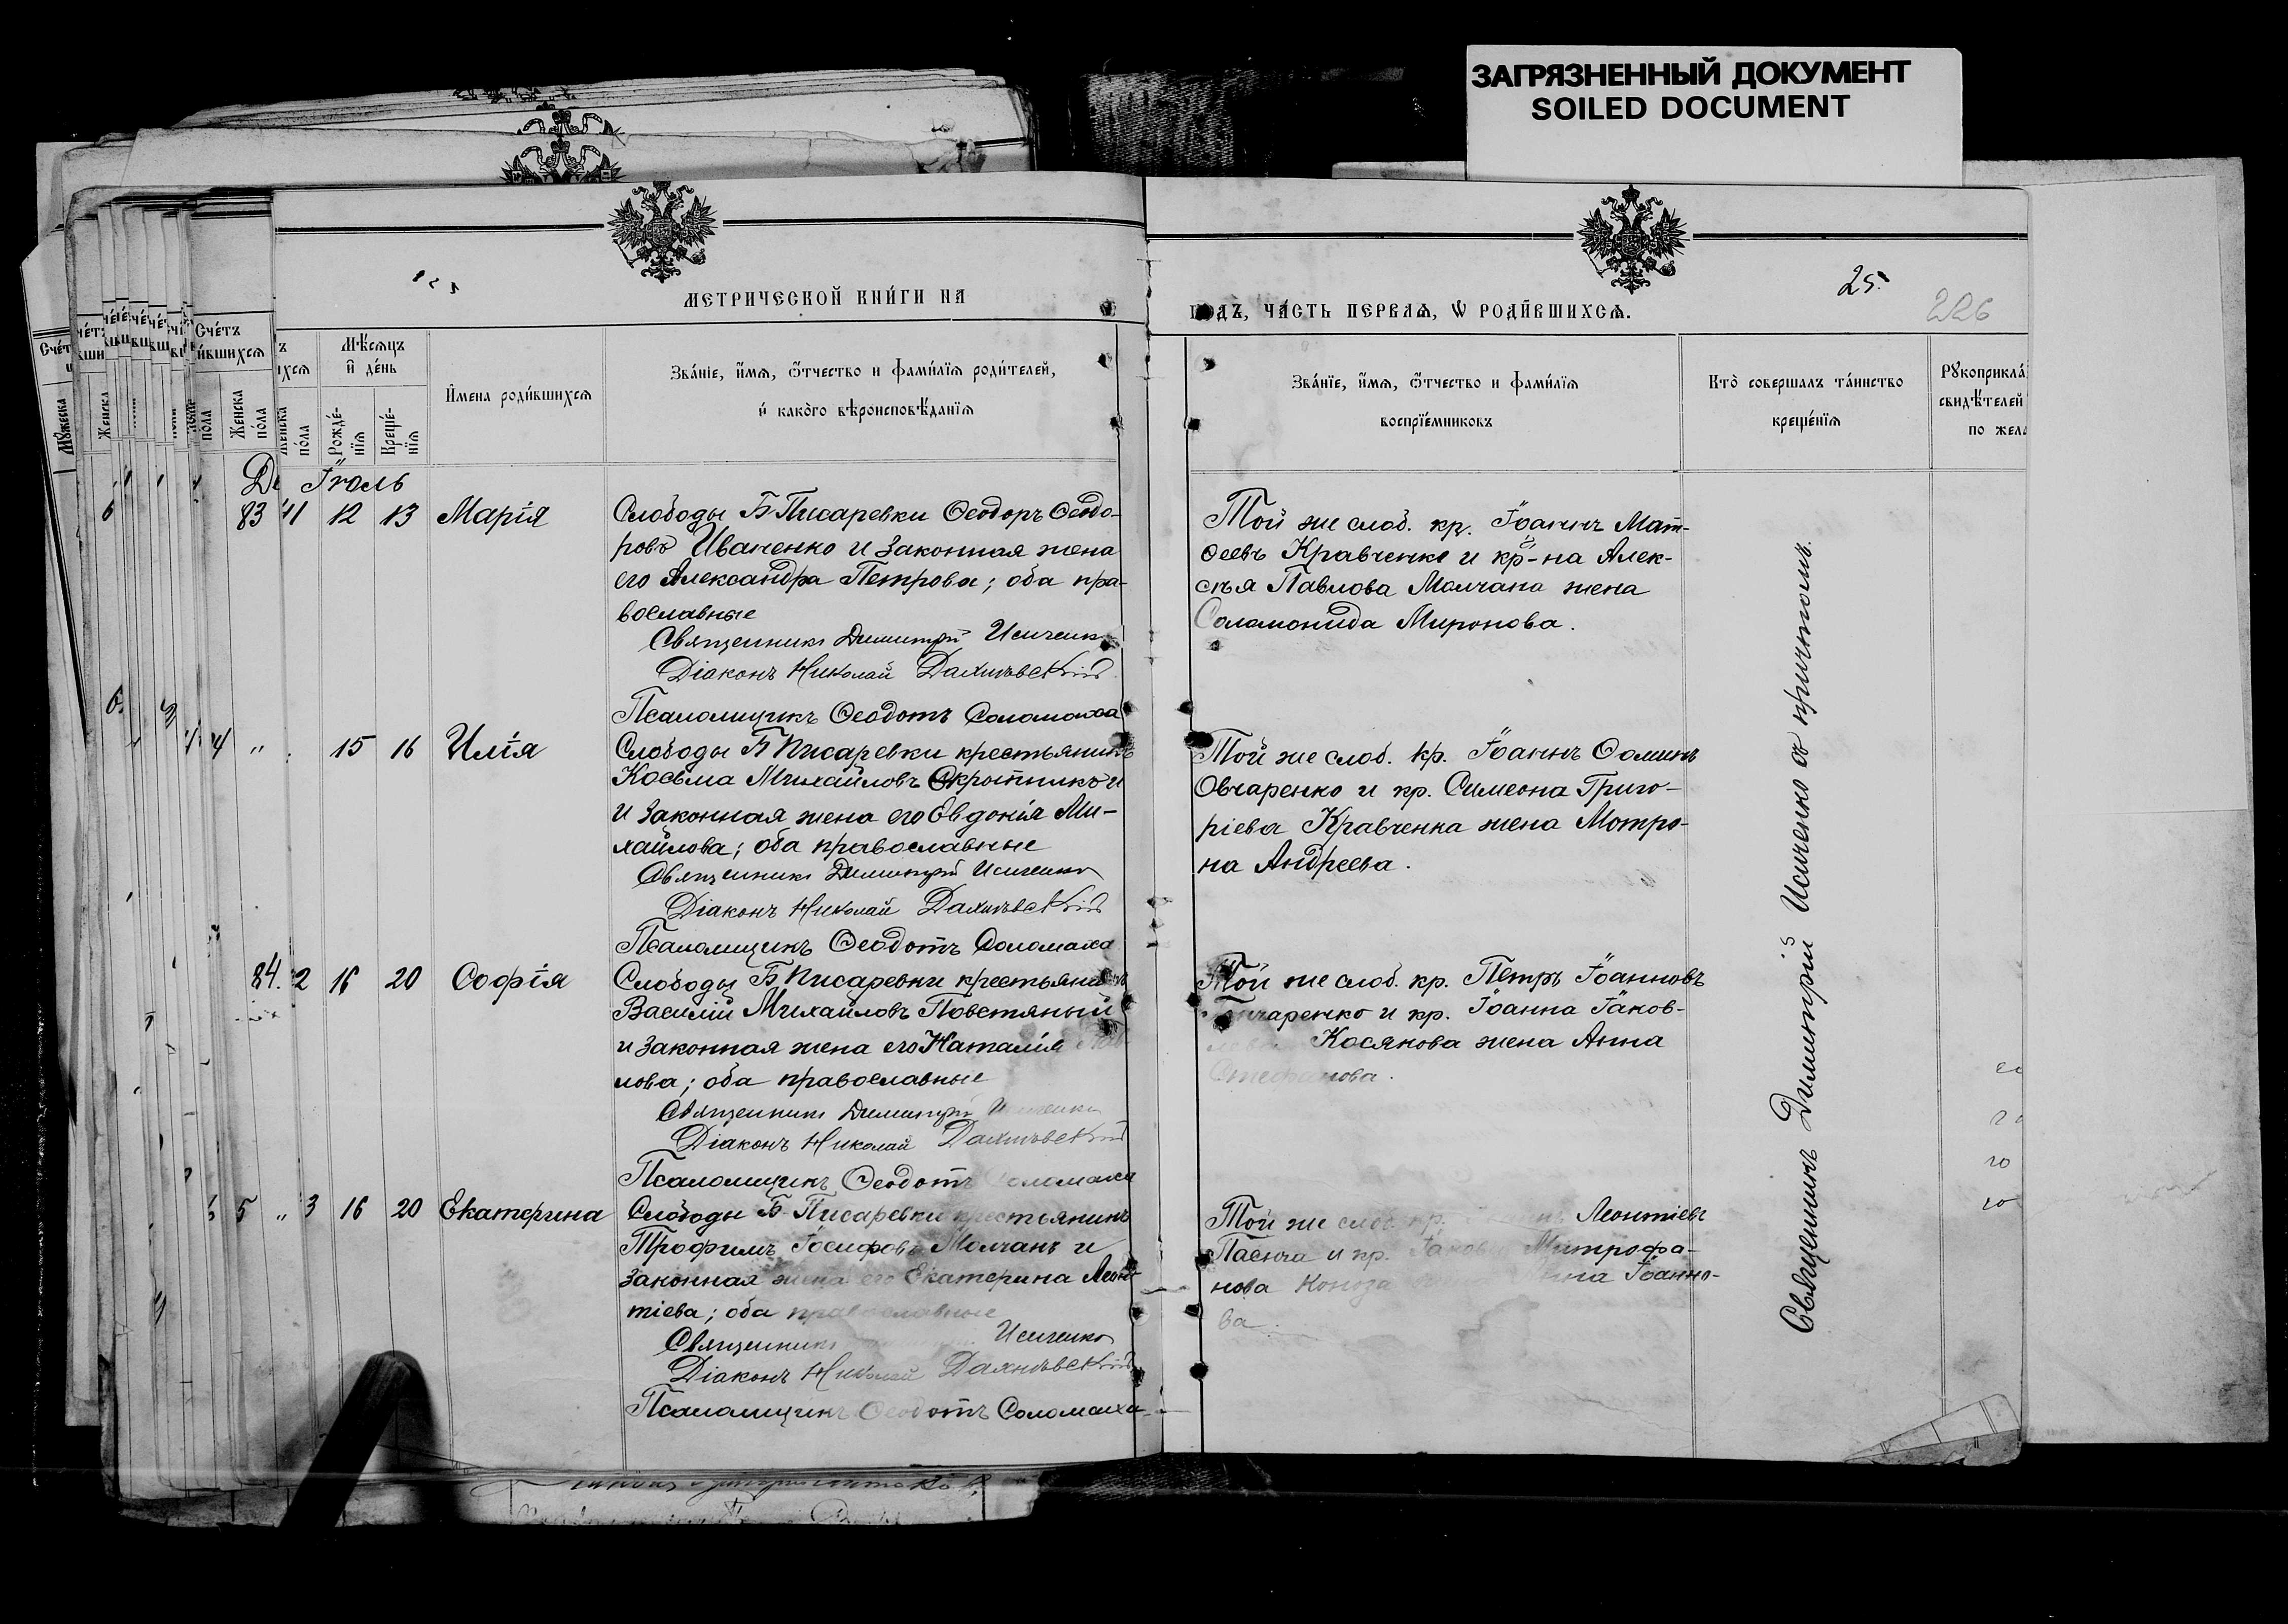 ЗАГРЯЗНЕННЫЙ ДОКУМЕНТ
SOILED DOCUMENT
МЕТРИЧЕСКОЙ КНИ́ГИ НА
ГОДЪ, ЧА́СТЬ ПЕРВАѦ, Ѡ РОДИ́ВШИХСѦ.
25.
226
Счéтъ
Мѣ́сѧцъ
и҆ де́нь
Женска
по́ла
Рожде́-
нїѧ
Креще́-
нїѧ
И҆мена роди́вшихсѧ
Зва́нїе, и҆́мѧ, ѻ҆́тчество и фами́лїѧ роди́телей,
и҆ како́го вѣроисповѣ́данїѧ
Зва́нїе, и҆́мѧ, ѻ҆́тчество и фами́лїѧ
воспрїе́мниковъ
Кто̀ соверша́лъ та́инство
креще́нїѧ
Рꙋкоприкла
свидѣ́телей
по жела
Іюль
83 41 12 13 Марія
Слободы Б-Писаревки Ѳеодоръ Ѳеодо-
ровъ Иваненко и законная жена
его Александра Петрова; оба пра-
вославные
Священникъ Димитрій Исиченко
Діаконъ Николай
Псаломщикъ Ѳеодотъ Соломаха
Той же слоб. кр. Іоаннъ Мат-
ѳеевъ Кравченко и кр-на Алек-
сѣя Павлова Молчана жена
Соломонида Миронова.
4 " 15 16 Илія
Слободы Б Писаревки крестьянинъ
Косьма Михайловъ и
и законная жена его Евдокія Ми-
хайлова; оба православные
Священникъ Димитрій Исиченко
Діаконъ Николай
Псаломщикъ Ѳеодотъ Соломаха
Той же слоб. кр. Іоаннъ Ѳоминъ
Овчаренко и кр. Симеона Григо-
ріева Кравченка жена Мотро-
на Андреева.
84. 2 16 20 Софія
Слободы Б Писаревки крестьянинъ
Василій Михайловъ Повстяный
и законная жена его Наталія
лова; оба православные
Священникъ Димитрій Исиченко
Діаконъ Николай
Псаломщикъ Ѳеодотъ Соломаха
Той же слоб. кр. Петръ Іоанновъ
и кр. Іоанна Іаков-
лева Косякова жена Анна
Стефанова.
5 " 3 16 20 Екатерина
Слободы Б-Писаревки крестьянинъ
Трофимъ Іосифовъ Молчанъ и
законная жена его Екатерина Леон-
тіева; оба православные
Священникъ Исиченко
Діаконъ Николай
Псаломщикъ Ѳеодотъ Соломаха
Той же слоб. кр. Леонтіевъ
и кр. Іакова Митрофа-
нова Іоанно-
ва.
Священникъ Димитрій Исиченко съ причтомъ.